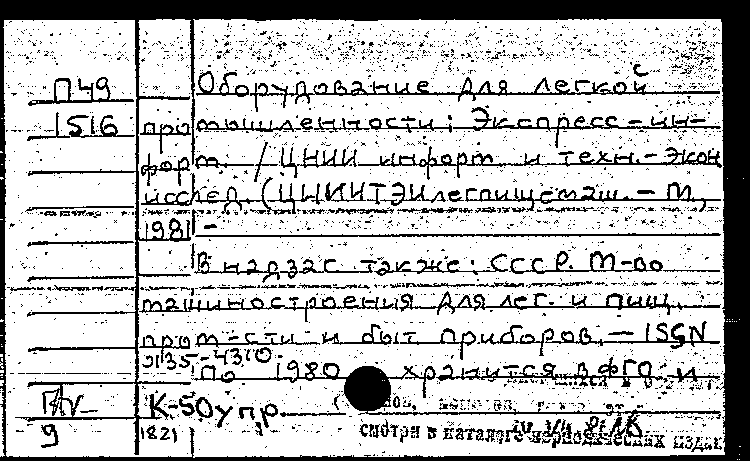 П49 Оборудование для легкой
1516 промышленности: Экспресс-ин-
форм. / ЦНИИ информ. и техн.-экон
исслед. (ЦНИИТЭИлегпищемаш. - М.,
1981 -
В надзаг. также: СССР. М-во
машиностроения для лег. и пищ.
пром-сти и быт приборов. - ISSN
0135-4310.
По 1980 хранится в ФГО и
К-50 упр.
9 1821
смотри в каталоге периодических издан